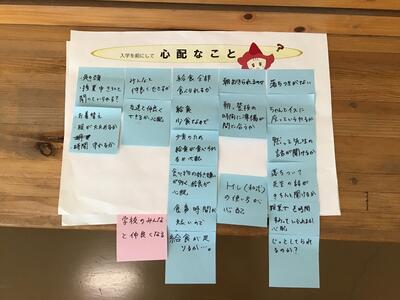 入学を前にして 心配なこと
?
・授業中きいて
みんなと
仲良くできるか
友達と仲良く
できるか心配
お着替え
時間 守れるか
給食全部
食べられるか
給食
少食なので
少食のため
給食が食べきれ
るか心配
食べ物の好き嫌い
が多く、給食が
心配
食事時間が
短いので
給食が足
りるか…。
朝起きられるのか
朝、登校の
時刻に準備が
間に合うか
トイレ(和式)
の使い方が
心配
落ちつきがない
ちゃんとイスに
座っていられるか
黙って先生の
話が聞けるか
落ちついて
先生の話が
きちんと聞けるか
心配
じっとしてられ
るのか?
学校のみんな
と仲良くなる